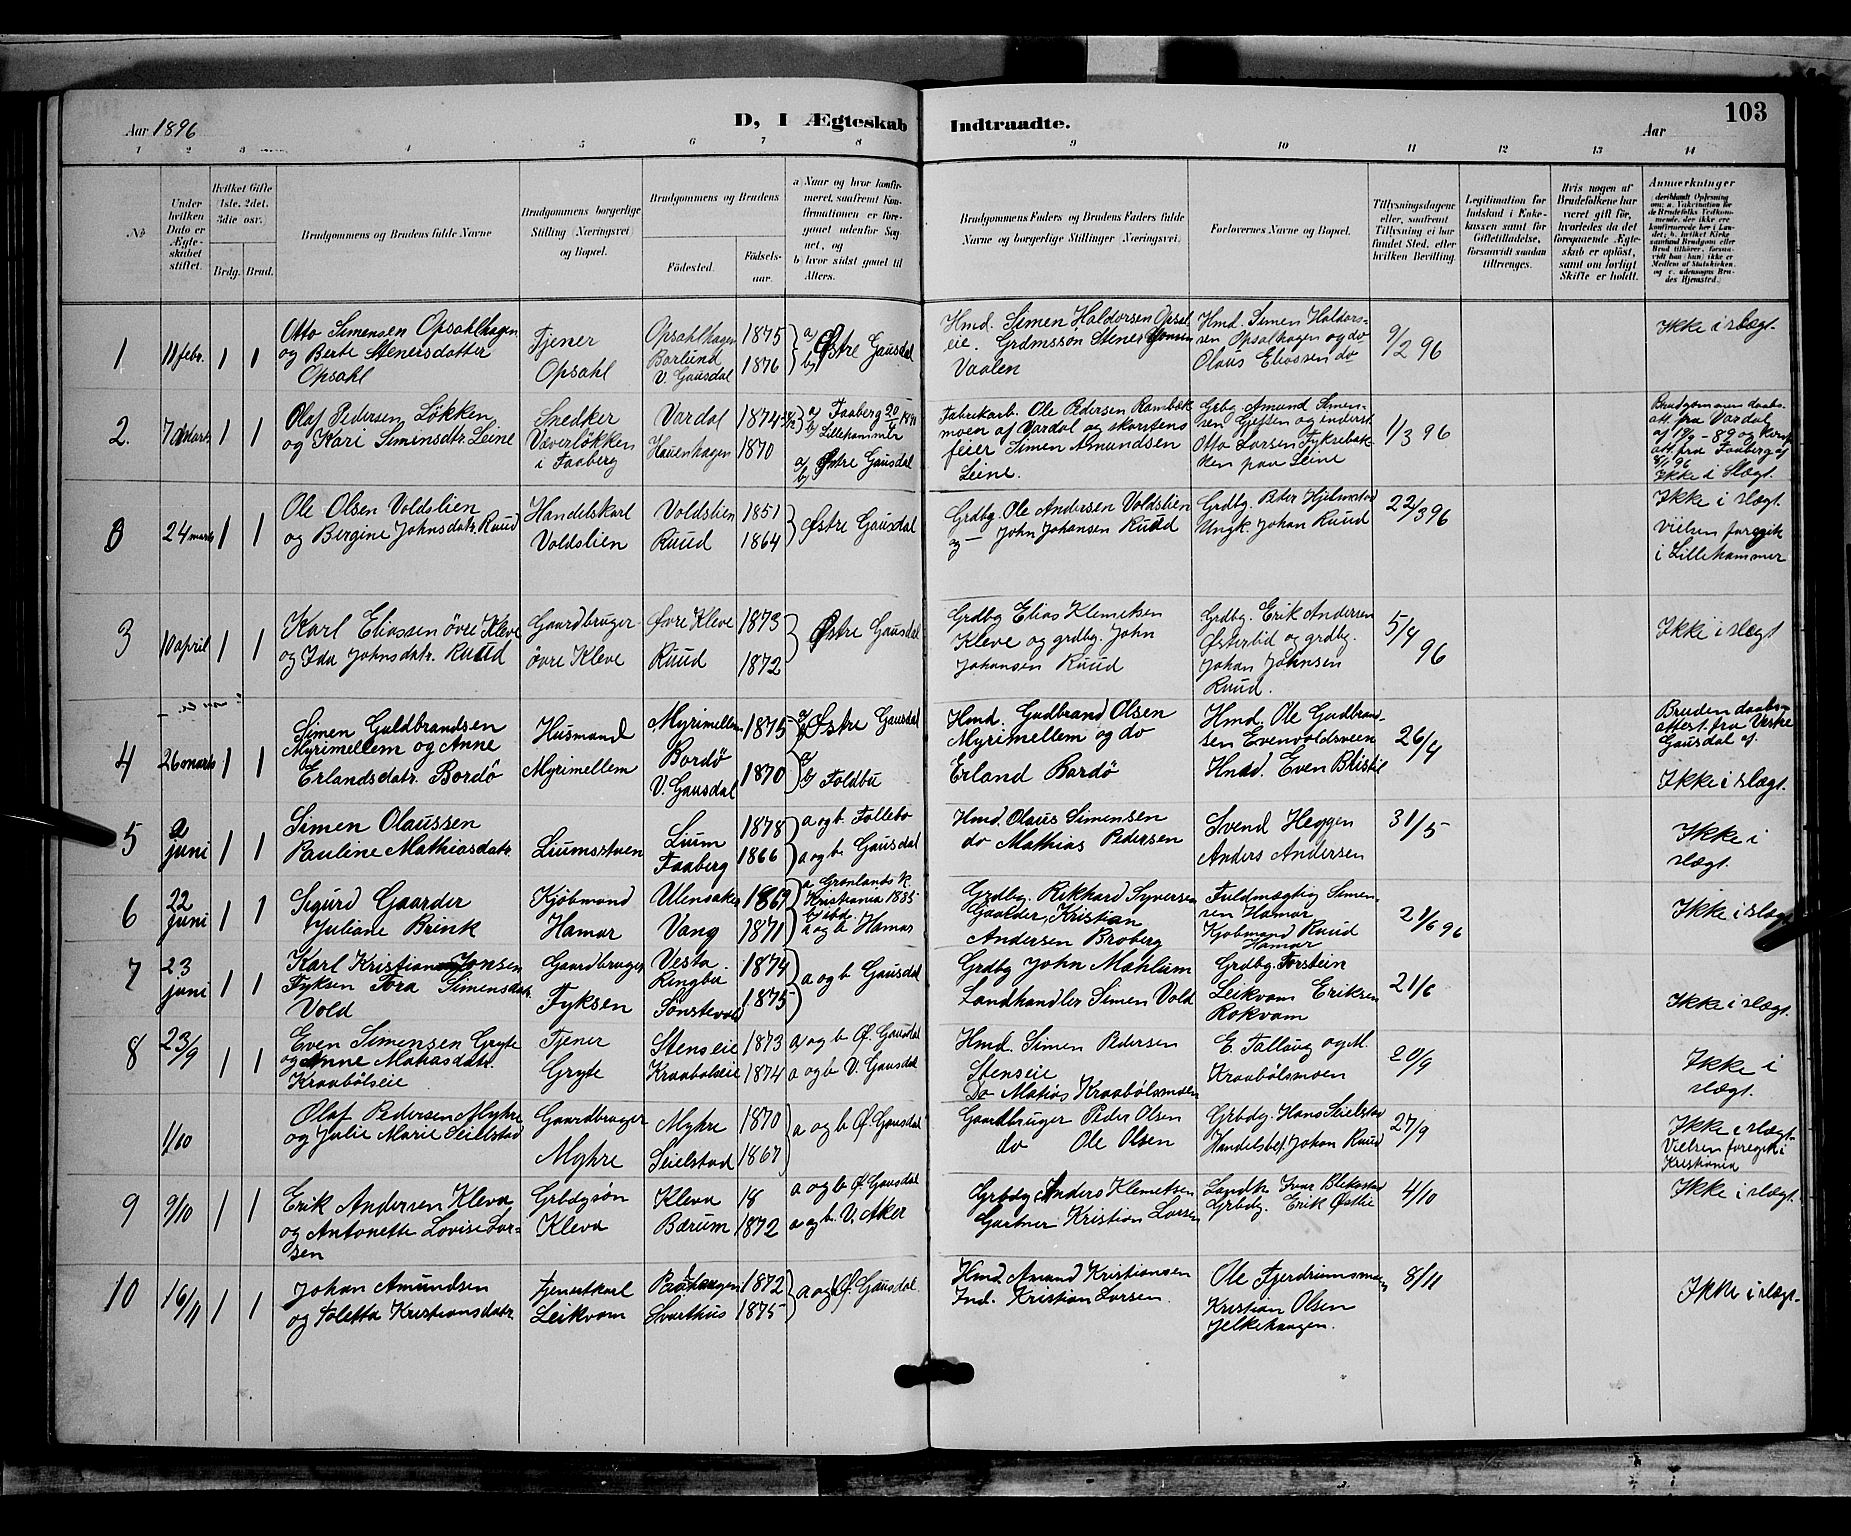 Aar 1896
D, I Ægteskab Indtraadte.
Aar
103
1 2 3 4 5 6 7 8 9 10 11 12 13 14
No
Under hvilken Dato er Ægteskabet stiftet.
Hvilket Gifte 1ste, 2det, 3die osv.
Brdg. Brud.
Brudgommens og Brudens fulde Navne
Brudgommens borgerlige Stilling (Næringsvei) og Bopæl.
Brudgommens og Brudens
Fødested. Fødselsaar.
a Naar og hvor konfirmeret, saafremt Konfirmationen er foregaaet udenfor Sognet, og
b hvor sidst gaaet til Alters.
Brudgommens Faders og Brudens Faders fulde Navne og borgerlige Stillinger (Næringsvei)
Forlovernes Navne og Bopæl.
Tillysningsdagene eller, saafremt Tillysning ei har fundet Sted, efter hvilken Bevilling.
Legitimation for Indskud i Enkekassen samt for Giftetilladelse, forsaavidt saadan tiltrænges.
Hvis nogen af Brudefolkene har været gift før, hvorledes da det foregaaende Ægteskab er opløst, samt om lovligt Skifte er holdt.
Anmærkninger
1 11 febr. 1 1
Otto Simensen Opsahlhagen
og Berte Stenersdatter
Opsahl
Tjener
Opsahl
Opsahlhagen 1875
Borlund
V. Gausdal 1876
a/ b/ Østre Gausdal
Hmd. Simen Haldorsen Opsal
eie. Grdmssøn Stener
Vaalen
Hmd. Simen Haldors-
sen Opsalhagen og do
Olaus Eliassen do
9/2 96
Ikke i slægt.
2. 7 Marts 1 1
Olaf Pedersen Løkken
og Kari Simensdtr. Leine
Snedker
Vaverløkken
i Faaberg
Vardal 1874
Hauenhagen 1870
a/ Faaberg
b/ Lillehammer
a/ b/ Østre Gausdal
Fabrikarb. Ole Pedersen Rambæk
moen af Vardal og skorstens
feier Simen Amundsen
Leine.
Grbg Amund Simen-
sen Gissen og inderst
Otto Larsen Fykrebak-
ken paa Leine
1/3 96
Brudgommens daabs-
att. fra Vardal
af 19/9 - 89 og konf.
att. fra Faaberg af
8/1 96
Ikke i Slægt.
3 24 marts 1 1
Ole Olsen Voldslien
og Bergine Johnsdatr. Ruud
Handelskarl
Voldslien
Voldslien 1851
Ruud 1864
Østre Gausdal
Grdbg. Ole Andersen Voldslien
og — John Johansen Ruud
Grdbg. Peter Hjelmstad
Ungk. Johan Ruud
22/3 96
Ikke i slægt.
Vielsen foregik
i Lillehammer
3 10 april 1 1
Karl Eliassen øvre Kleve
og Ida Johnsdatr. Ruud
Gaardbruger
øvre Kleve
Øvre Kleve 1873
Ruud 1872
Østre Gausdal
Grdbg Elias Klemetsen
Kleve og grdbg. John
Johansen Ruud
Grdbg. Erik Andersen
Østerlid og grdbg.
Johan Johnsen
Ruud.
5/4 96
Ikke i slægt
4 26 marts 1 1
Simen Guldbrandsen
Myrimellem og Anne
Erlandsdatr. Bordø
Husmand
Myrimellem
Myrimellem 1875
Bordø
V. Gausdal 1870
a/ b/ Østre Gausdal
a/ b/ Foldbu
Hmd. Gudbrand Olsen
Myrimellem og do
Erland Bordø
Hmd. Ole Gudbrand-
sen Evenvoldsveen
Hmd. Even Blistil
26/4
Bruden daabs-
attest. fra Vestre
Gausdal af.
Ikke i slægt.
5 2 juni 1 1
Simen Olaussen
Pauline Mathiasdatr.
Liumsstuen
Lium 1878
Faaberg 1866
a og b. Follebo
a og b. Gausdal
Hmd. Olaus Simensen
do Mathias Pedersen
Svend Heggen
Anders Andersen
31/5
Ikke i
slægt.
6 22 juni 1 1
Sigurd Gaarder
Juliane Brink
Kjøbmand
Hamar
Ulensaker 1869
Vang 1871
a Grønlands k.
Kristiania 1885
b/ ibd.
a og b. Hamar
Grdbg. Rikhard Syversen
Gaarder, Kristian
Andersen Broberg
Fuldmægtig Simen-
sen Hamar
Kjøbmand Ruud
Hamar
21/6 96
Ikke i slægt
7 23 juni 1 1
Karl Kristian Jonsen
Fyksen Tora Simensdatr.
Vold
Gaardbruger
Fyksen
Vesta
Ringbu 1874
Sønstevold 1875
a og b. Gausdal
Grdbg John Mæhlum
Landhandler Simen Vold
Grdbg. Torstein
Leikvam Eriksen
Rokvam
21/6
Ikke i slægt.
8 23/9 1 1
Even Simensen Gryte
og Anne Matiasdatr.
Kraabølseie
Tjener
Gryte
Stenseie 1873
Kraabølseie 1874
a og b Ø. Gausdal
a og b V. Gausdal
Hmd. Simen Pedersen
Stenseie
Do Matias Kraabølsmoen
E. Fallaug og M.
Kraabølsmoen
20/9
Ikke i
slægt.
1/10
Olaf Pedersen Myhre
og Julie Marie Seielstad
Gaardbruger
Myhre
Myhre 1870
Seielstad 1867
a og b Ø Gausdal
Gaardbruger Peder Olsen
do Ole Olsen
Grbdg. Hans Seielstad
Handelsbet. Johan Ruud
27/9
Ikke i slægt.
Vielsen foregik i
Kristiania
9 9/10 1 1
Erik Andersen Kleva
og Antonette Lovise Lar-
sen
Grbdgsøn
Kleva
Kleva 18
Bærum 1872
a og b Ø Gausdal
a og b. V. Aker
Grbdg Anders Klemetsen
Gartner Kristian Larsen
Landh. Ivar Blekastad
Grbdg. Erik Østlie
4/10
Ikke i slægt.
10 16/11 1 1
Johan Amundsen
og Toletta Kristiansdatr.
Tjenestkarl
Leikvam
1872
Svarthus 1875
a og b Ø. Gausdal
Hmd. Amund Kristiansen
Ind. Kristian Larsen.
Ole Fjerdrumsmoen
Kristian Olsen
Jelkehaugen.
8/11
Ikke i slægt.